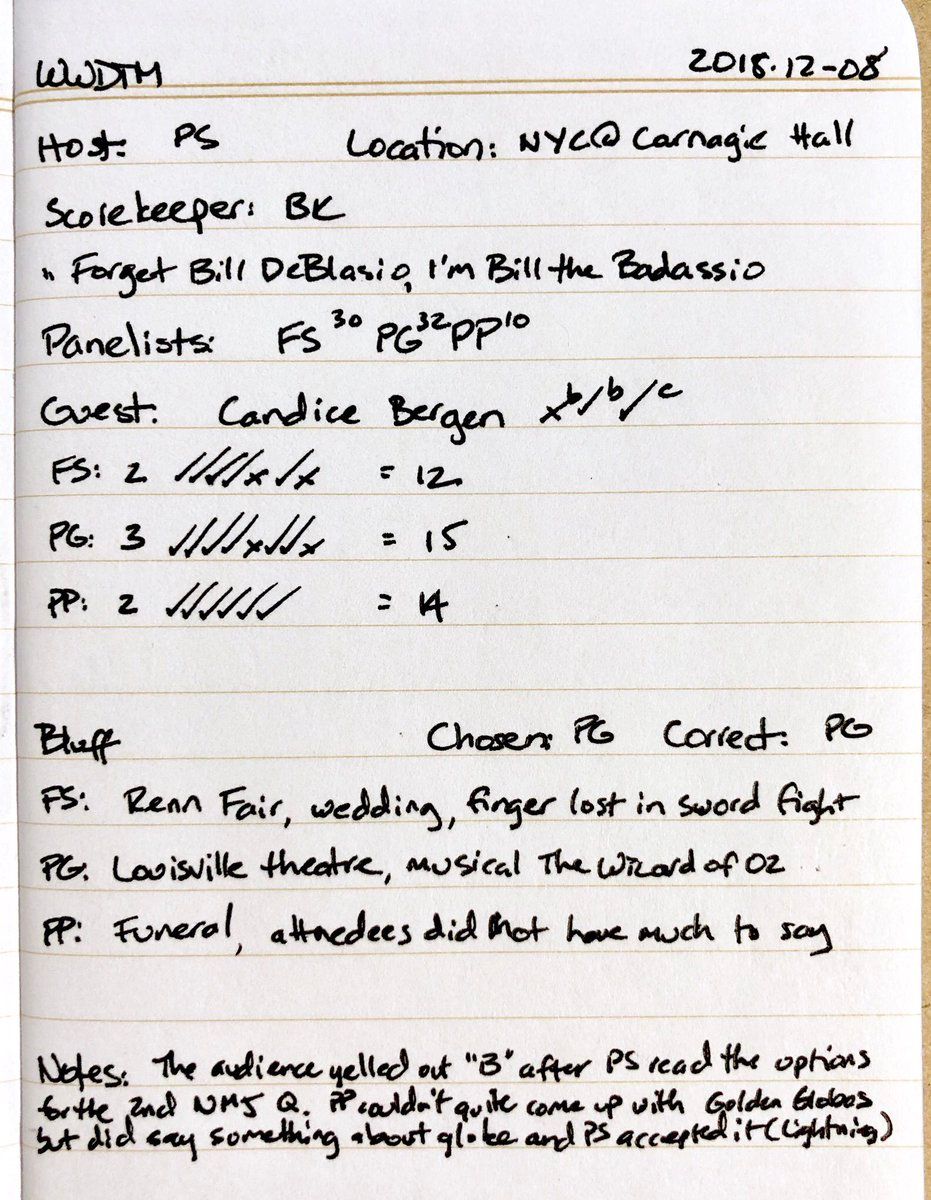 WWDTM 2018.12-08
Host: PS Location: NYC@ Carnagie Hall
Scorekeeper: BK
" Forget Bill DeBlasio, I'm Bill the Badassio
Panelists: FS 30 PG 32 PP 10
Guest: Candice Bergen x b / b / c
FS: 2 ✓✓✓✓x✓x = 12
PG: 3 ✓✓✓✓x✓✓x = 15
PP: 2 ✓✓✓✓✓✓ = 14
Bluff Chosen: PG Correct: PG
FS: Renn Fair, wedding, finger lost in sword fight
PG: Louisville theatre, musical The Wizard of Oz
PP: Funeral, attnedees did not have much to say
Notes: The audience yelled out "B" after PS read the options
for the 2nd NMJ Q. PP couldn't quite come up with Golden Globes
but did say something about globe and PS accepted it (Lightning)